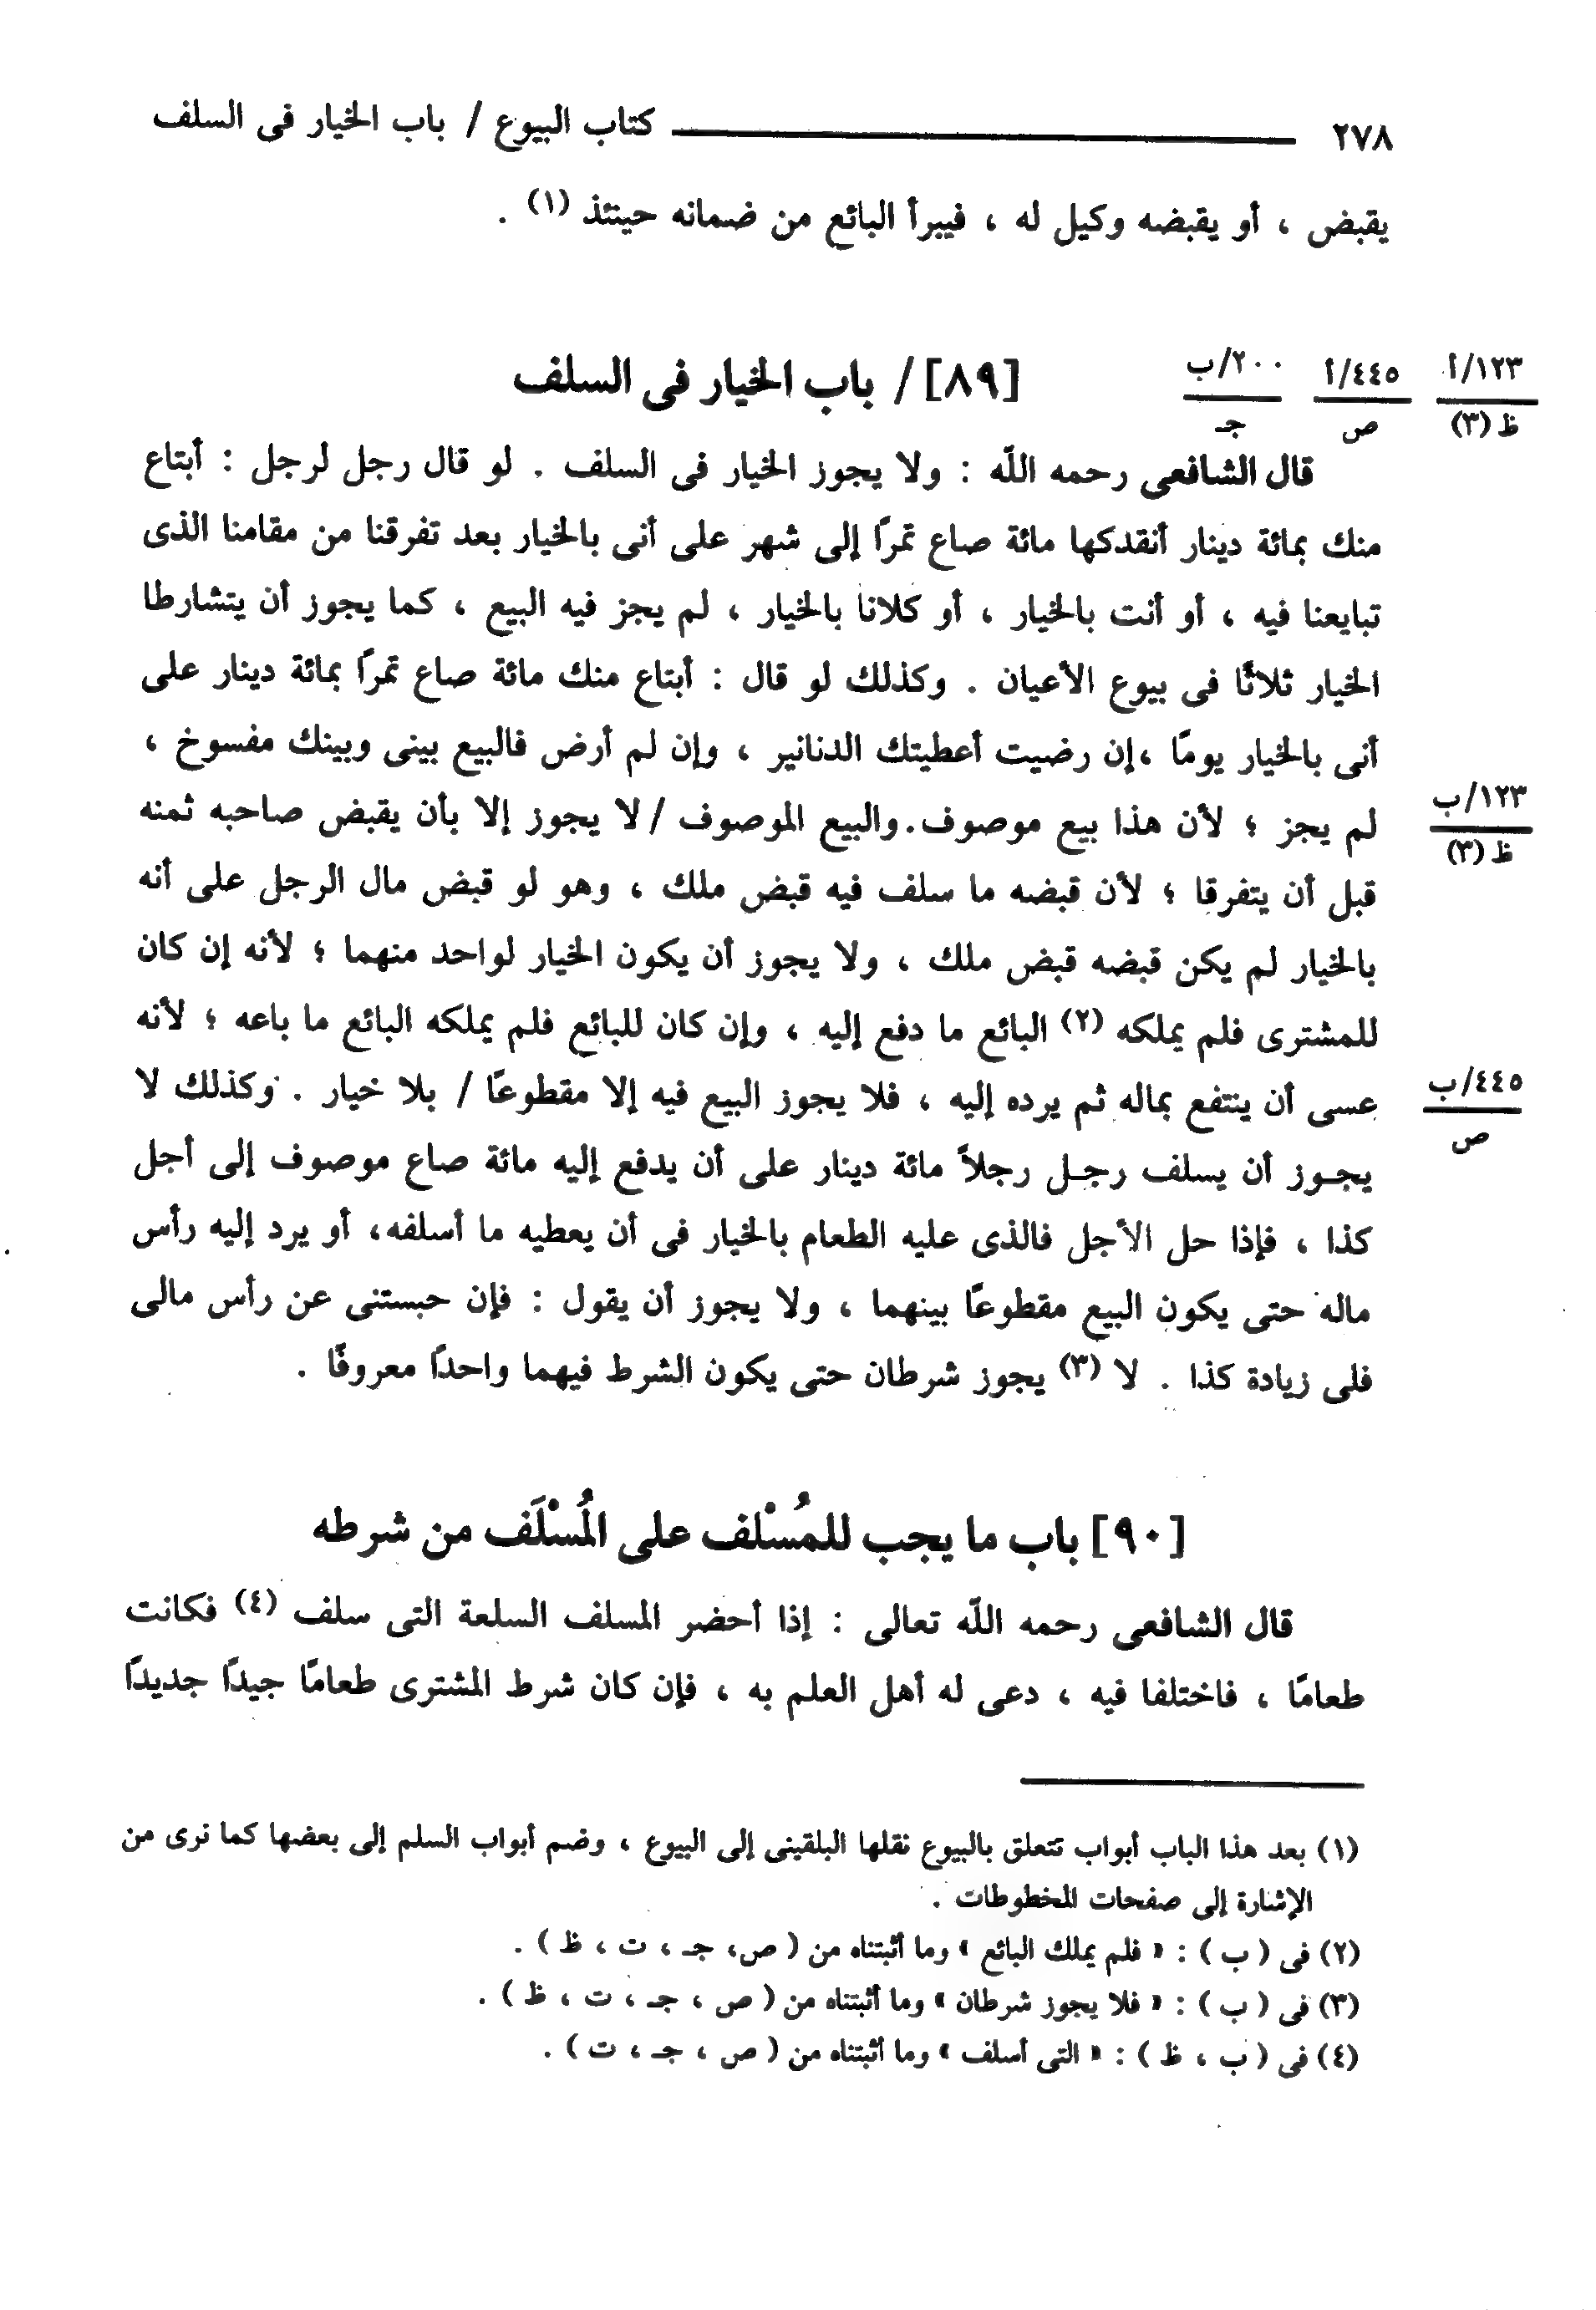 ٢٧٨ كتاب البيوع / باب الخيار فى السلف
يقبض ، أو يقبضه وكيل له ، فيبرأ البائع من ضمانه حينئذ (١) .
١٢٣/أ
ظ (٣)
٤٤٥/أ
ص
٢٠٠/ب
جـ
[٨٩] / باب الخيار فى السلف
قال الشافعى رحمه اللّه : ولا يجوز الخيار فى السلف . لو قال رجل لرجل : أبتاع
منك بمائة دينار أنقدكها مائة صاع تمرًا إلى شهر على أنى بالخيار بعد تفرقنا من مقامنا الذى
تبايعنا فيه ، أو أنت بالخيار ، أو كلانا بالخيار ، لم يجز فيه البيع ، كما يجوز أن يتشارطا
الخيار ثلاثًا فى بيوع الأعيان . وكذلك لو قال : أبتاع منك مائة صاع تمرًا بمائة دينار على
أنى بالخيار يومًا ،إن رضيت أعطيتك الدنانير ، وإن لم أرض فالبيع بينى وبينك مفسوخ ،
لم يجز ؛ لأن هذا بيع موصوف.والبيع الموصوف / لا يجوز إلا بأن يقبض صاحبه ثمنه
١٢٣/ب
ظ (٣)
قبل أن يتفرقا ؛ لأن قبضه ما سلف فيه قبض ملك ، وهو لو قبض مال الرجل على أنه
بالخيار لم يكن قبضه قبض ملك ، ولا يجوز أن يكون الخيار لواحد منهما ؛ لأنه إن كان
للمشترى فلم يملكه (٢) البائع ما دفع إليه ، وإن كان للبائع فلم يملكه البائع ما باعه ؛ لأنه
عسى أن ينتفع بماله ثم يرده إليه ، فلا يجوز البيع فيه إلا مقطوعًا / بلا خيار . وكذلك لا
٤٤٥/ب
ص
يجـوز أن يسلف رجـل رجلاً مائة دينار على أن يدفع إليه مائة صاع موصوف إلى أجل
كذا ، فإذا حل الأجل فالذى عليه الطعام بالخيار فى أن يعطيه ما أسلفه، أو يرد إليه رأس
ماله حتى يكون البيع مقطوعًا بينهما ، ولا يجوز أن يقول : فإن حبستنى عن رأس مالى
فلى زيادة كذا . لا (٣) يجوز شرطان حتى يكون الشرط فيهما واحدًا معروفًا .
[٩٠] باب ما يجب للمُسْلف على المُسْلَف من شرطه
قال الشافعى رحمه اللّه تعالى : إذا أحضر المسلف السلعة التى سلف (٤) فكانت
طعامًا ، فاختلفا فيه ، دعى له أهل العلم به ، فإن كان شرط المشترى طعامًا جيدًا جديدًا
(١) بعد هذا الباب أبواب تتعلق بالبيوع نقلها البلقينى إلى البيوع ، وضم أبواب السلم إلى بعضها كما نرى من
الإشارة إلى صفحات المخطوطات .
(٢) فى ( ب ) : « فلم يملك البائع » وما أثبتناه من ( ص، جـ ، ت ، ظ ) .
(٣) فى ( ب ) : « فلا يجوز شرطان » وما أثبتناه من ( ص ، جـ ، ت ، ظ ) .
(٤) فى ( ب ، ظ ) : « التى أسلف » وما أثبتناه من ( ص ، جـ ، ت ) .